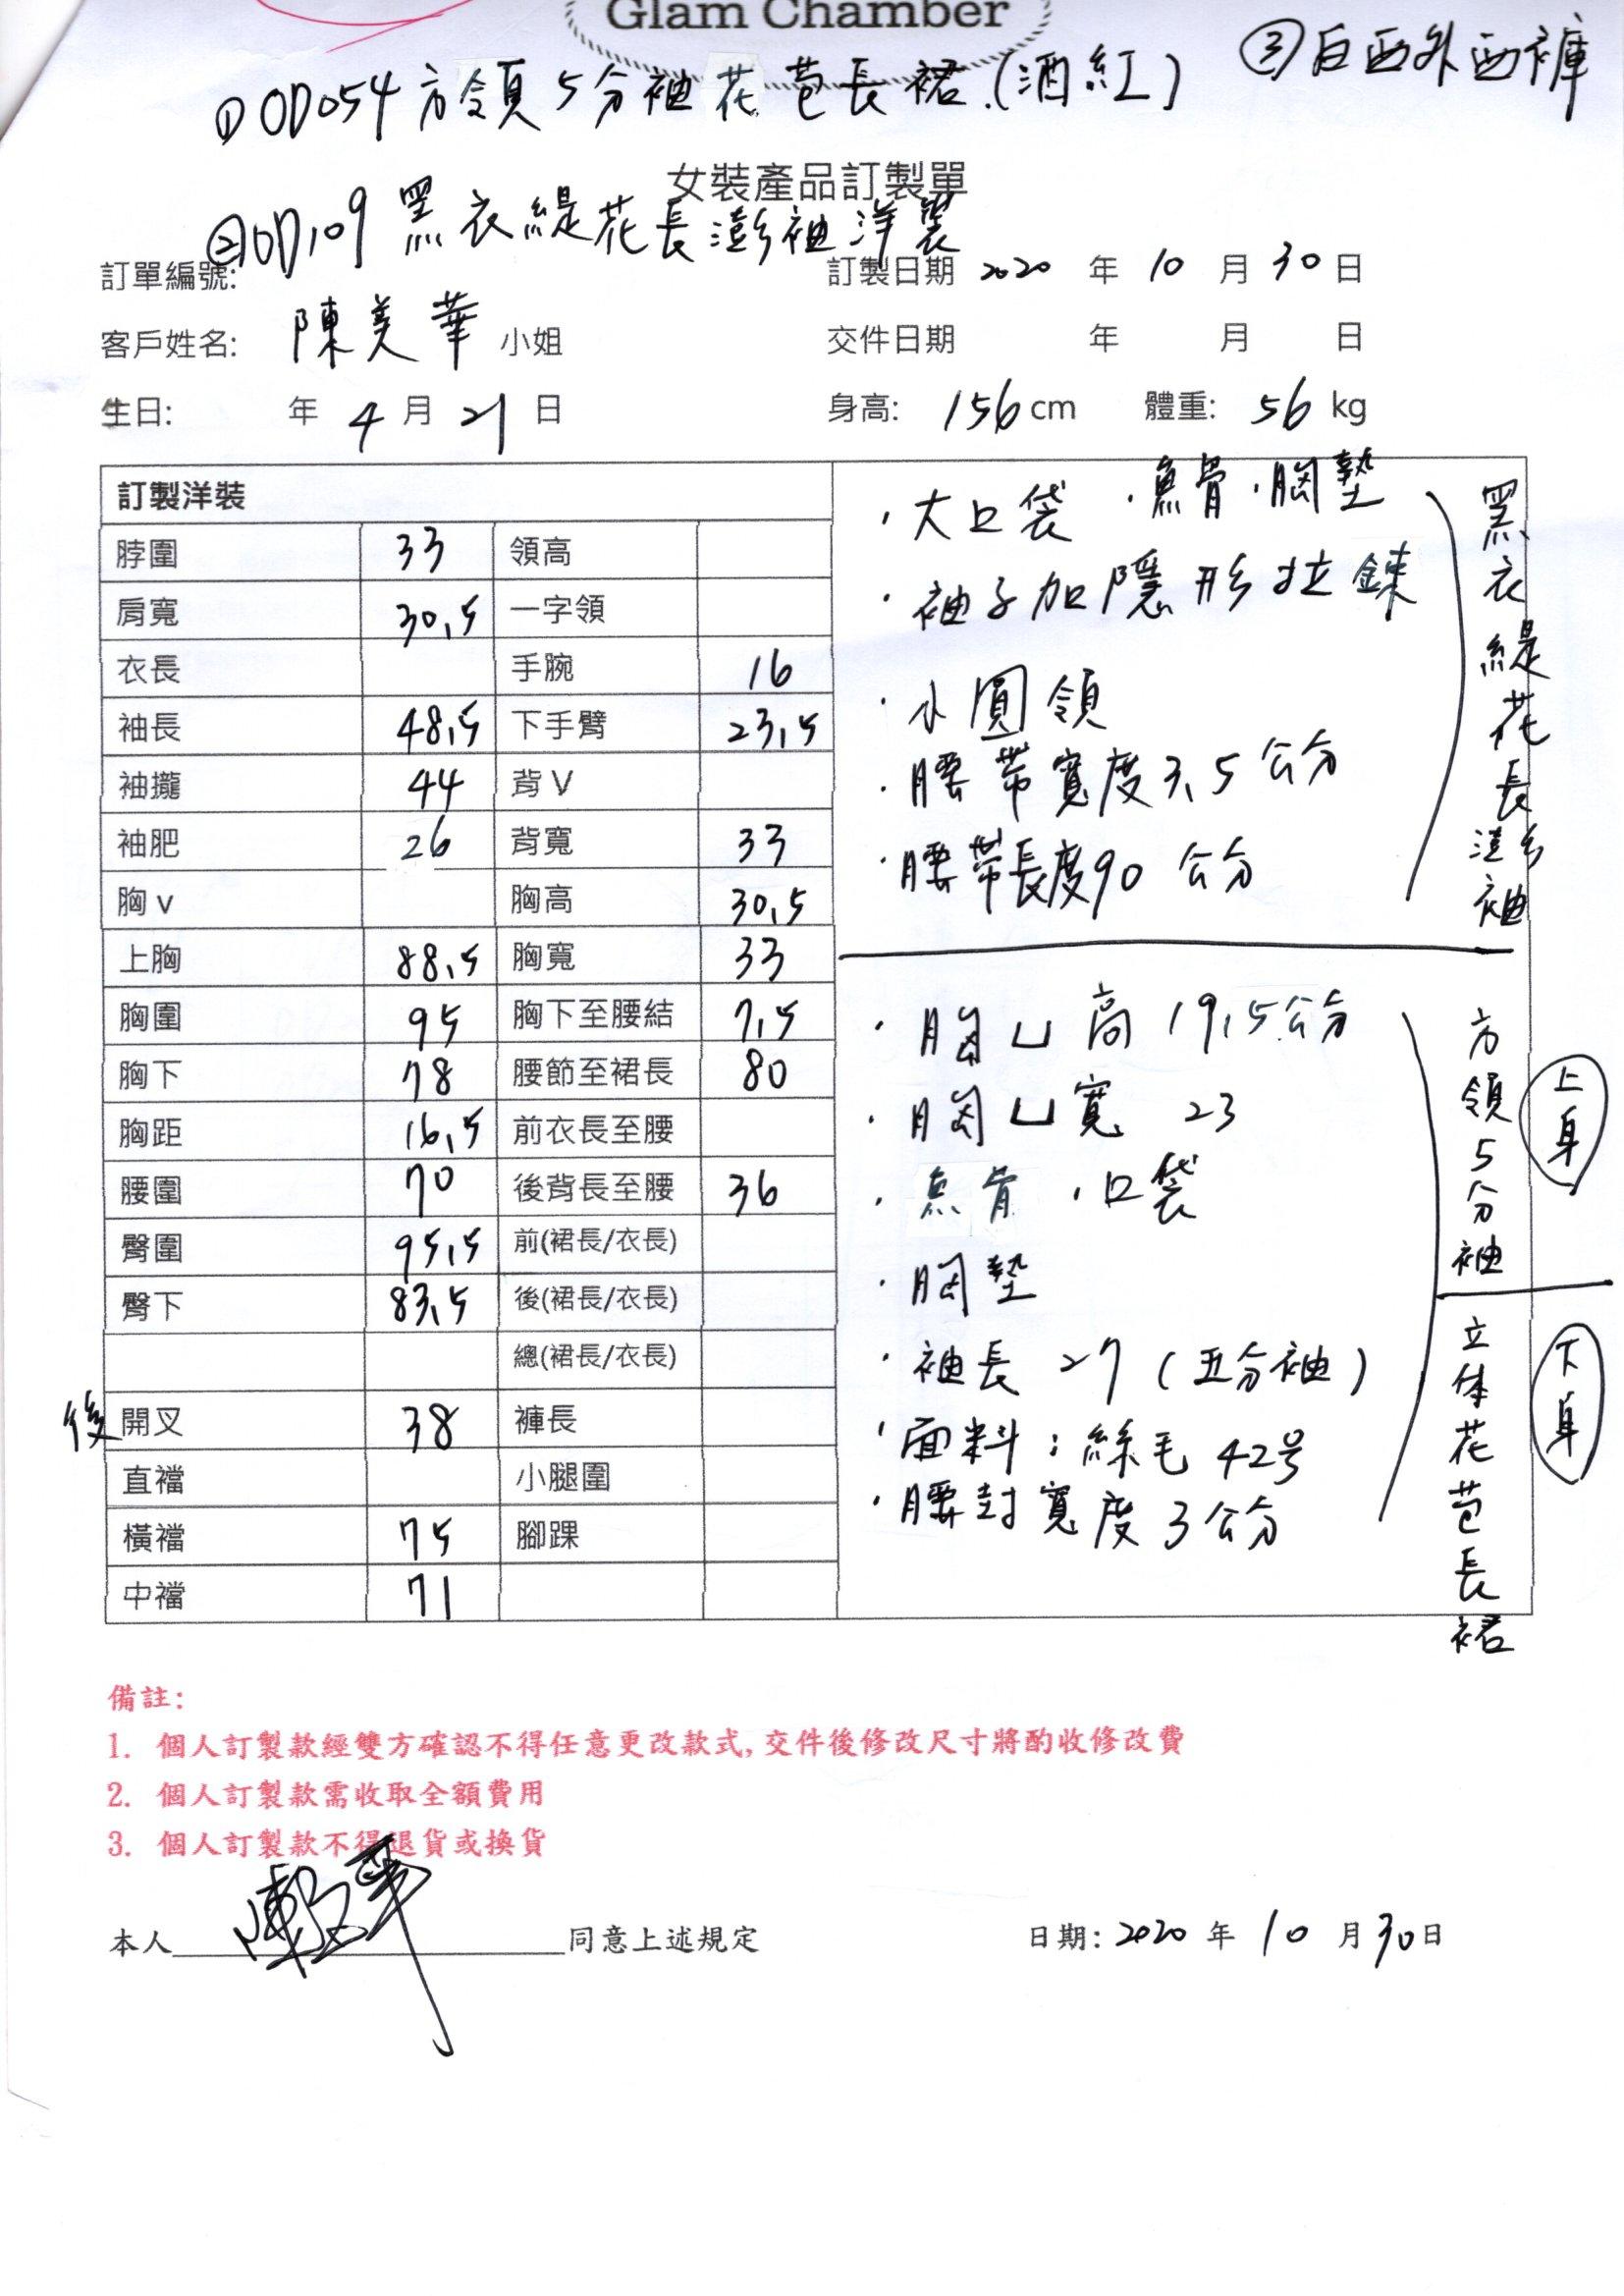 Glam Chamber
①OD054方領5分袖花苞長裙.(酒紅) ③白西外西褲
女裝產品訂製單
②OD109黑衣緹花長澎袖洋裝
訂單編號: 訂製日期 2020 年 10 月 30 日
客戶姓名: 陳美華 小姐 交件日期 年 月 日
生日: 年 4 月 21 日 身高: 156 cm 體重: 56 kg
訂製洋裝
脖圍 33 領高
肩寬 30.5 一字領
衣長 手腕 16
袖長 48.5 下手臂 23.5
袖攏 44 背V
袖肥 26 背寬 33
胸v 胸高 30.5
上胸 88.5 胸寬 33
胸圍 95 胸下至腰結 7.5
胸下 78 腰節至裙長 80
胸距 16.5 前衣長至腰
腰圍 70 後背長至腰 36
臀圍 95.5 前(裙長/衣長)
臀下 83.5 後(裙長/衣長)
總(裙長/衣長)
後 開叉 38 褲長
直襠 小腿圍
橫襠 75 腳踝
中襠 71
·大口袋 ·魚骨·胸墊
·袖子加隱形拉鍊
·小圓領
·腰帶寬度3.5公分
·腰帶長度90公分
黑衣緹花長澎袖
·胸凵高19.5公分
·胸凵寬 23
·魚骨 ·口袋
·胸墊
·袖長 27(五分袖)
·面料:絲毛42号
·腰封寬度3公分
方領5分袖
上身
立体花苞長裙
下身
備註:
1. 個人訂製款經雙方確認不得任意更改款式,交件後修改尺寸將酌收修改費
2. 個人訂製款需收取全額費用
3. 個人訂製款不得退貨或換貨
本人 同意上述規定 日期: 2020 年 10 月 30 日